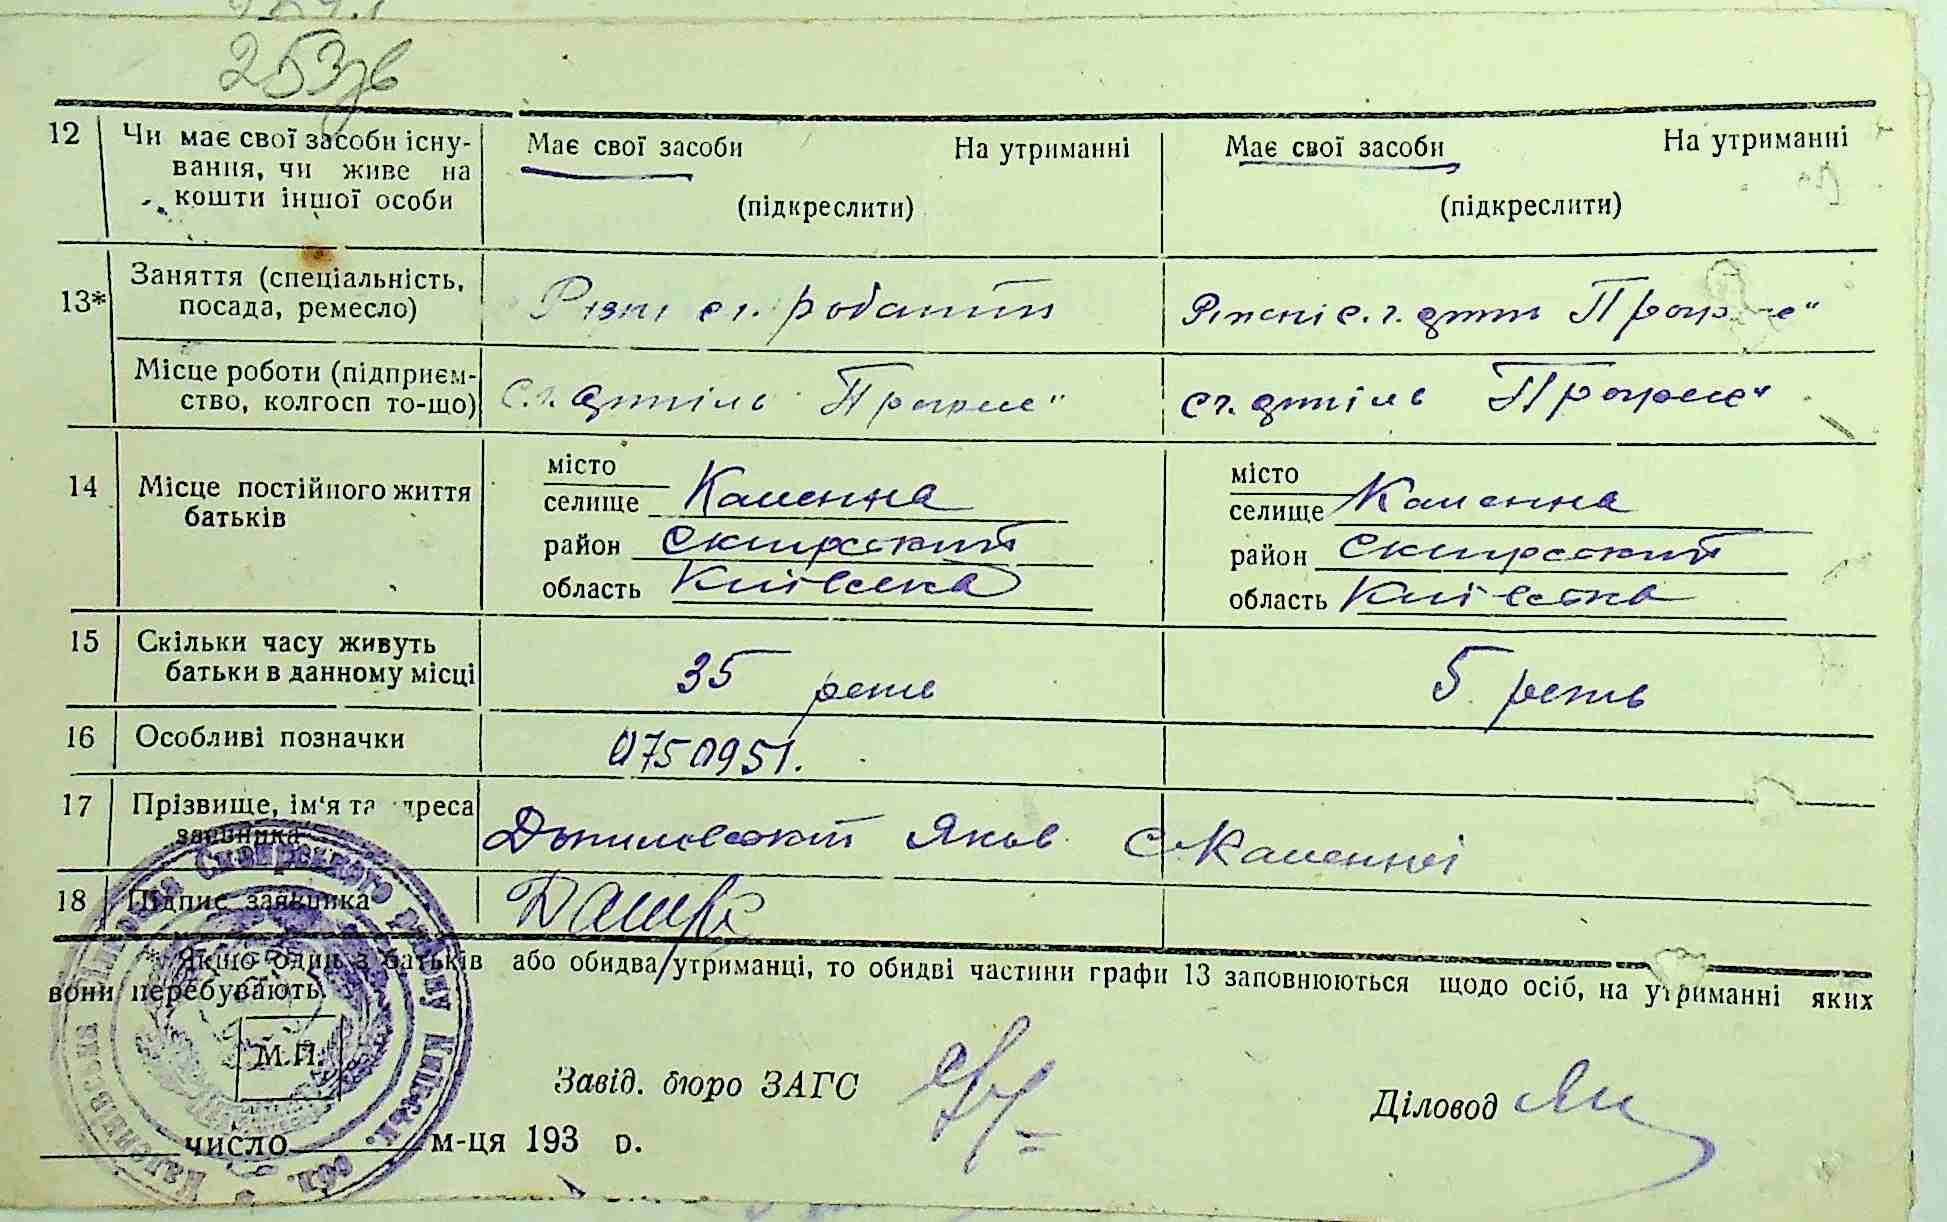 253зв
12 Чи має свої засоби існу- Має свої засоби На утриманні Має свої засоби На утриманні
вання, чи живе на
кошти іншої особи (підкреслити) (підкреслити)
13* Заняття (спеціальність,
посада, ремесло) с.г. роботи с.г. Прогрес"
Місце роботи (підприєм-
ство, колгосп то-що) с.г. артіль Прогрес" с.г. артіль Прогрес"
14 Місце постійного життя
батьків
місто місто
селище Каменна селище Каменна
район Сквирський район Сквирський
область Київська область Київська
15 Скільки часу живуть
батьки в данному місці 35 5
16 Особливі позначки 0750951.
17 Прізвище, ім'я та адреса
заявника Яков с. Каменної
18 Підпис заявника
* Якщо один з батьків або обидва утриманці, то обидві частини графи 13 заповнюються щодо осіб, на утриманні яких
вони перебувають.
М.П.
Завід. бюро ЗАГС Діловод
число м-ця 193 р.
Сквирського району Київськ. обл.